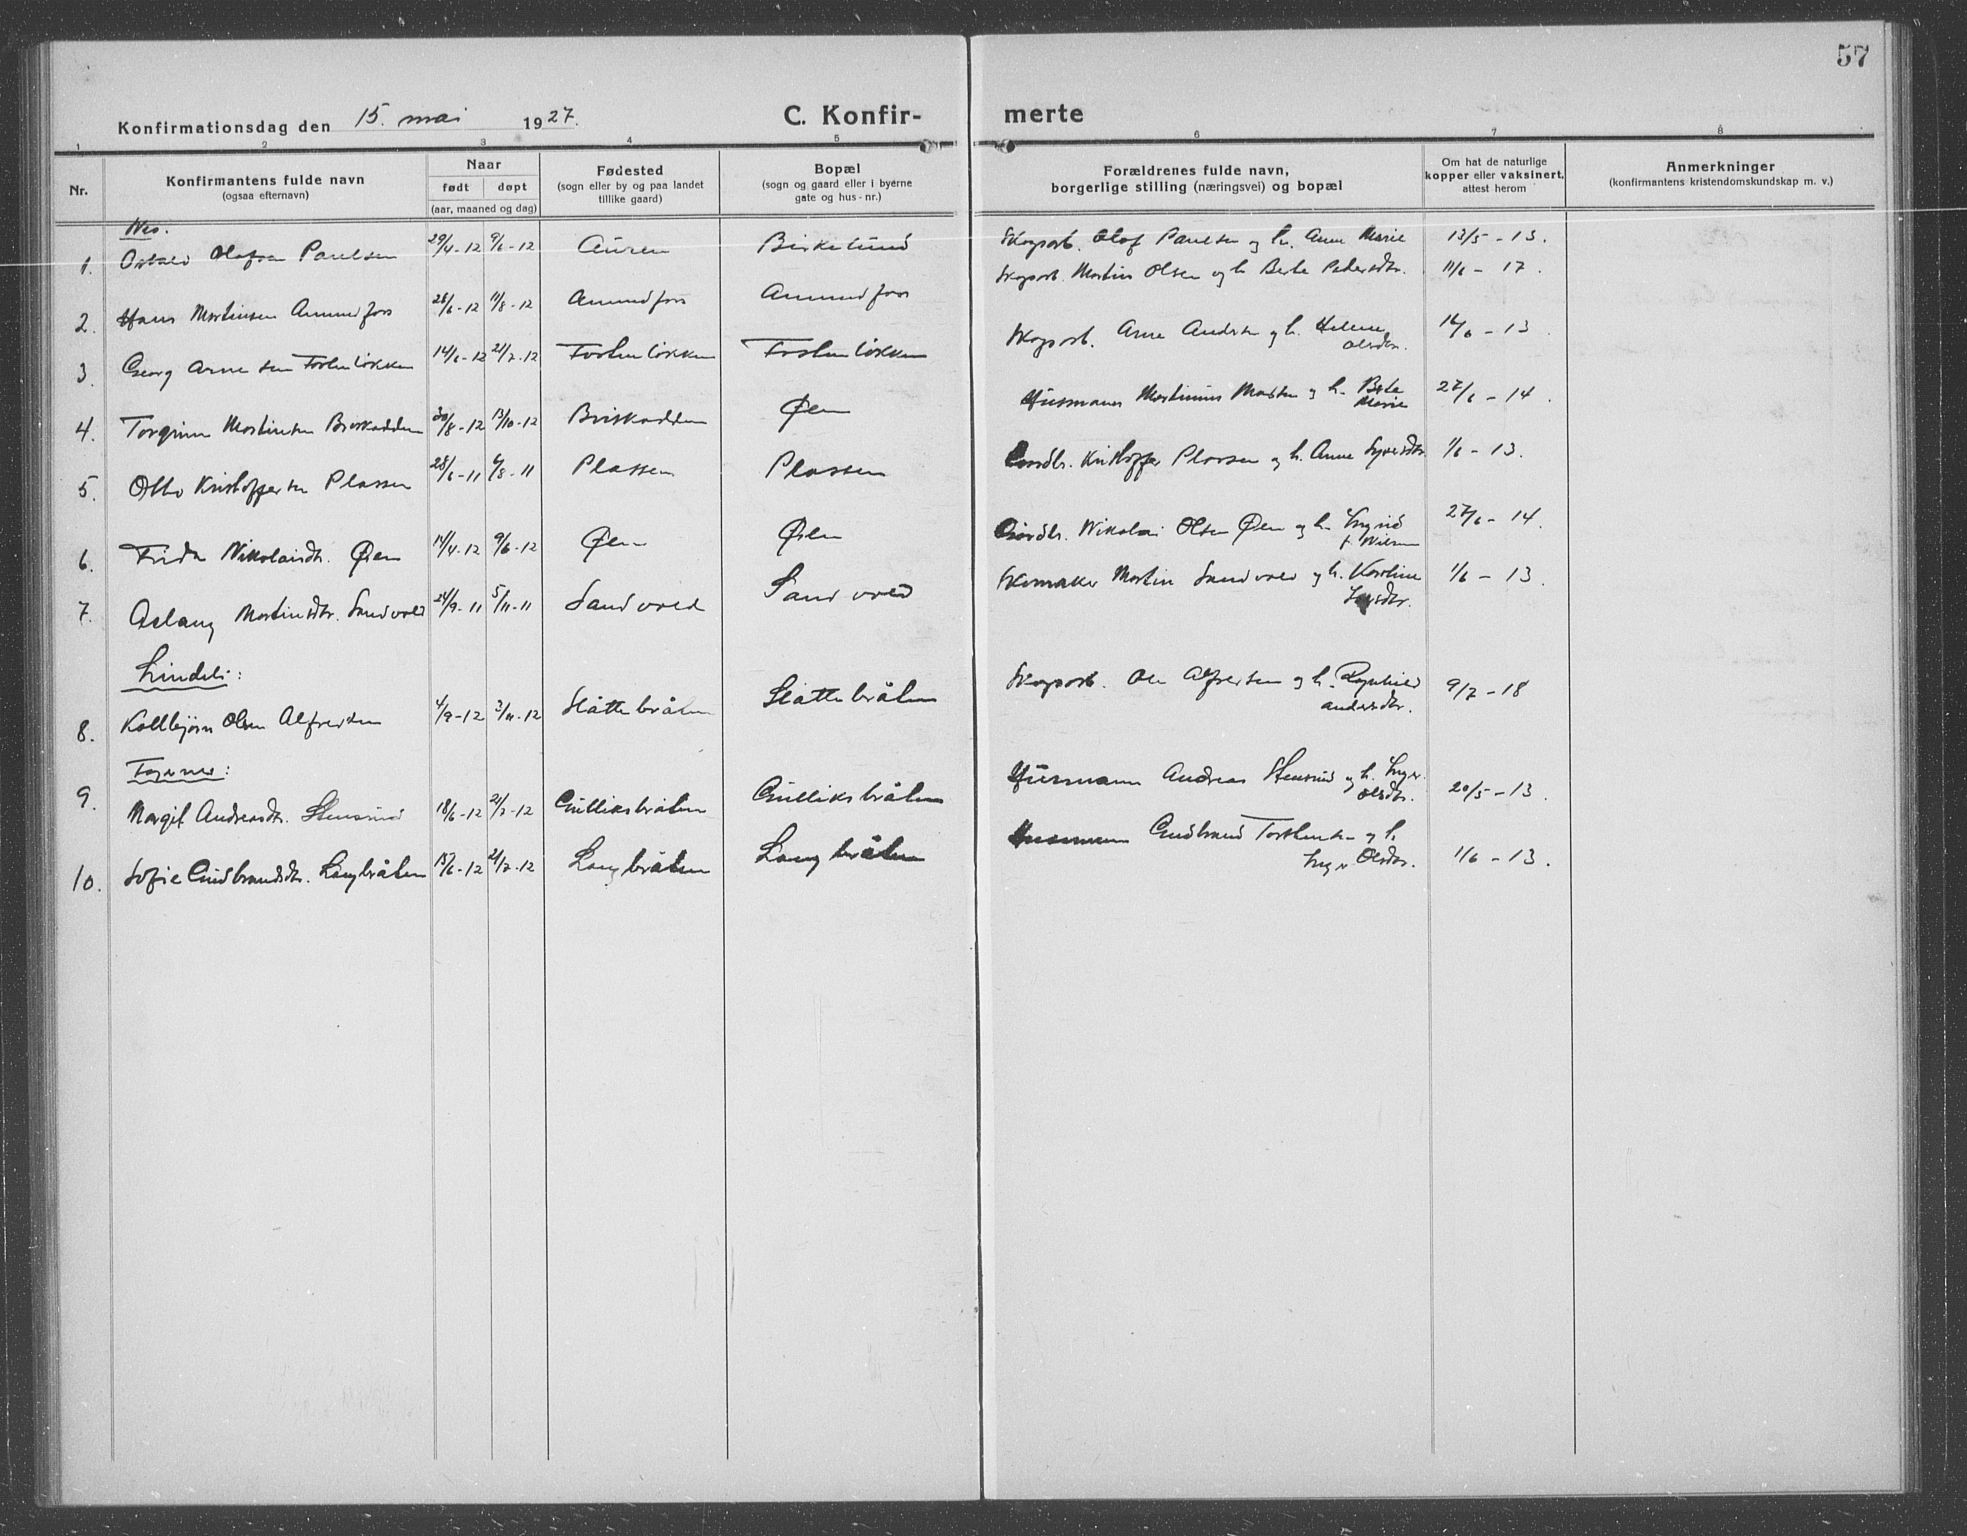 57
Konfirmationsdag den 15. mai 1927.
C. Konfirmerte
1 2 3 4 5 6 7 8
Nr.
Konfirmantens fulde navn
(ogsaa efternavn)
Naar
født døpt
(aar, maaned og dag)
Fødested
(sogn eller by og paa landet
tillike gaard)
Bopæl
(sogn og gaard eller i byerne
gate og hus-nr.)
Forældrenes fulde navn,
borgerlige stilling (næringsvei) og bopæl
Om hat de naturlige
kopper eller vaksinert,
attest herom
Anmerkninger
(konfirmantens kristendomskundskap m. v.)
Nes.
1. Olafsen Paulsen 29/4-12 9/6-12 Auren Birkelund Skogsarb. Olof Paulsen og h. Anne Marie 13/5-13.
2. Hans Martinsen Amundfors 28/6-12 11/8-12 Amundfors Amundfors Skogsarb. Martin Olsen og h. Berte Pedersdtr. 11/6-17.
3. Georg Arnesen 14/6-12 21/7-12 Skogsarb. Arne Anders og h. Helene
Olsdtr. 16/6-13
4. Torgrim Martinsen Briskodden 30/8-12 13/10-12 Briskodden Øen Husmann Martinius og h. Berte
Marie 27/6-14.
5. Otto Kristoffersen Plassen 28/6-11 6/8-11 Plassen Plassen Gårdbr. Kristoffer Plassen og h. Anne Syversdtr. 1/6-13.
6. Frida Nikolaidtr. Øen 14/4-12 9/6-12 Øen Øen Gårdbr. Nikolai Olsen Øen og h. Ingrid
f. Nilsen 27/6-14.
7. Aslaug Martinsdtr. Sandvold 24/9-11 5/11-11 Sandvold Sandvold Skomaker Martin Sandvold og h. Karoline
Larsdtr. 1/6-13.
Lindeli:
8. Kollbjørn Olsen Alfredsen 4/9-12 3/11-12 Slåttebråten Slåttebråten Skogsarb. Ole Alfredsen og h. Ragnhild
Andersdtr. 9/7-18
9. Margit Andreasdtr. Stensrud 18/6-12 21/7-12 Gulliksbråten Gulliksbråten Husmann Andreas Stensrud og h. Inger
Olsdtr. 20/5-13.
10. Sofie Gudbrandsdtr. Langbråten 15/6-12 21/7-12 Langbråten Langbråten Husmann Gudbrand Torstensen og h.
Inger Olsdtr. 1/6-13.